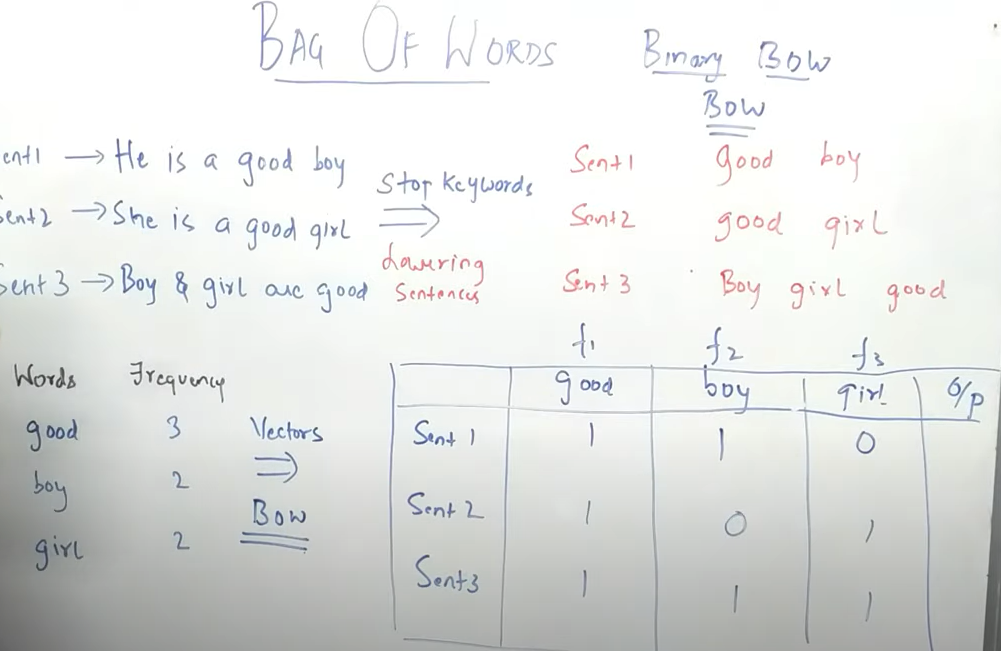 BAG OF WORDS
Binary BOW
BOW
ent1 → He is a good boy
Sent2 → She is a good girl
Sent 3 → Boy & girl are good
Stop Keywords
⇒
Lowering
Sentences
Sent1 good boy
Sent2 good girl
Sent 3 Boy girl good
Words Frequency
good 3
boy 2
girl 2
Vectors
⇒
BOW
f1 f2 f3
good boy girl O/p
Sent 1 1 1 0
Sent 2 1 0 1
Sent3 1 1 1